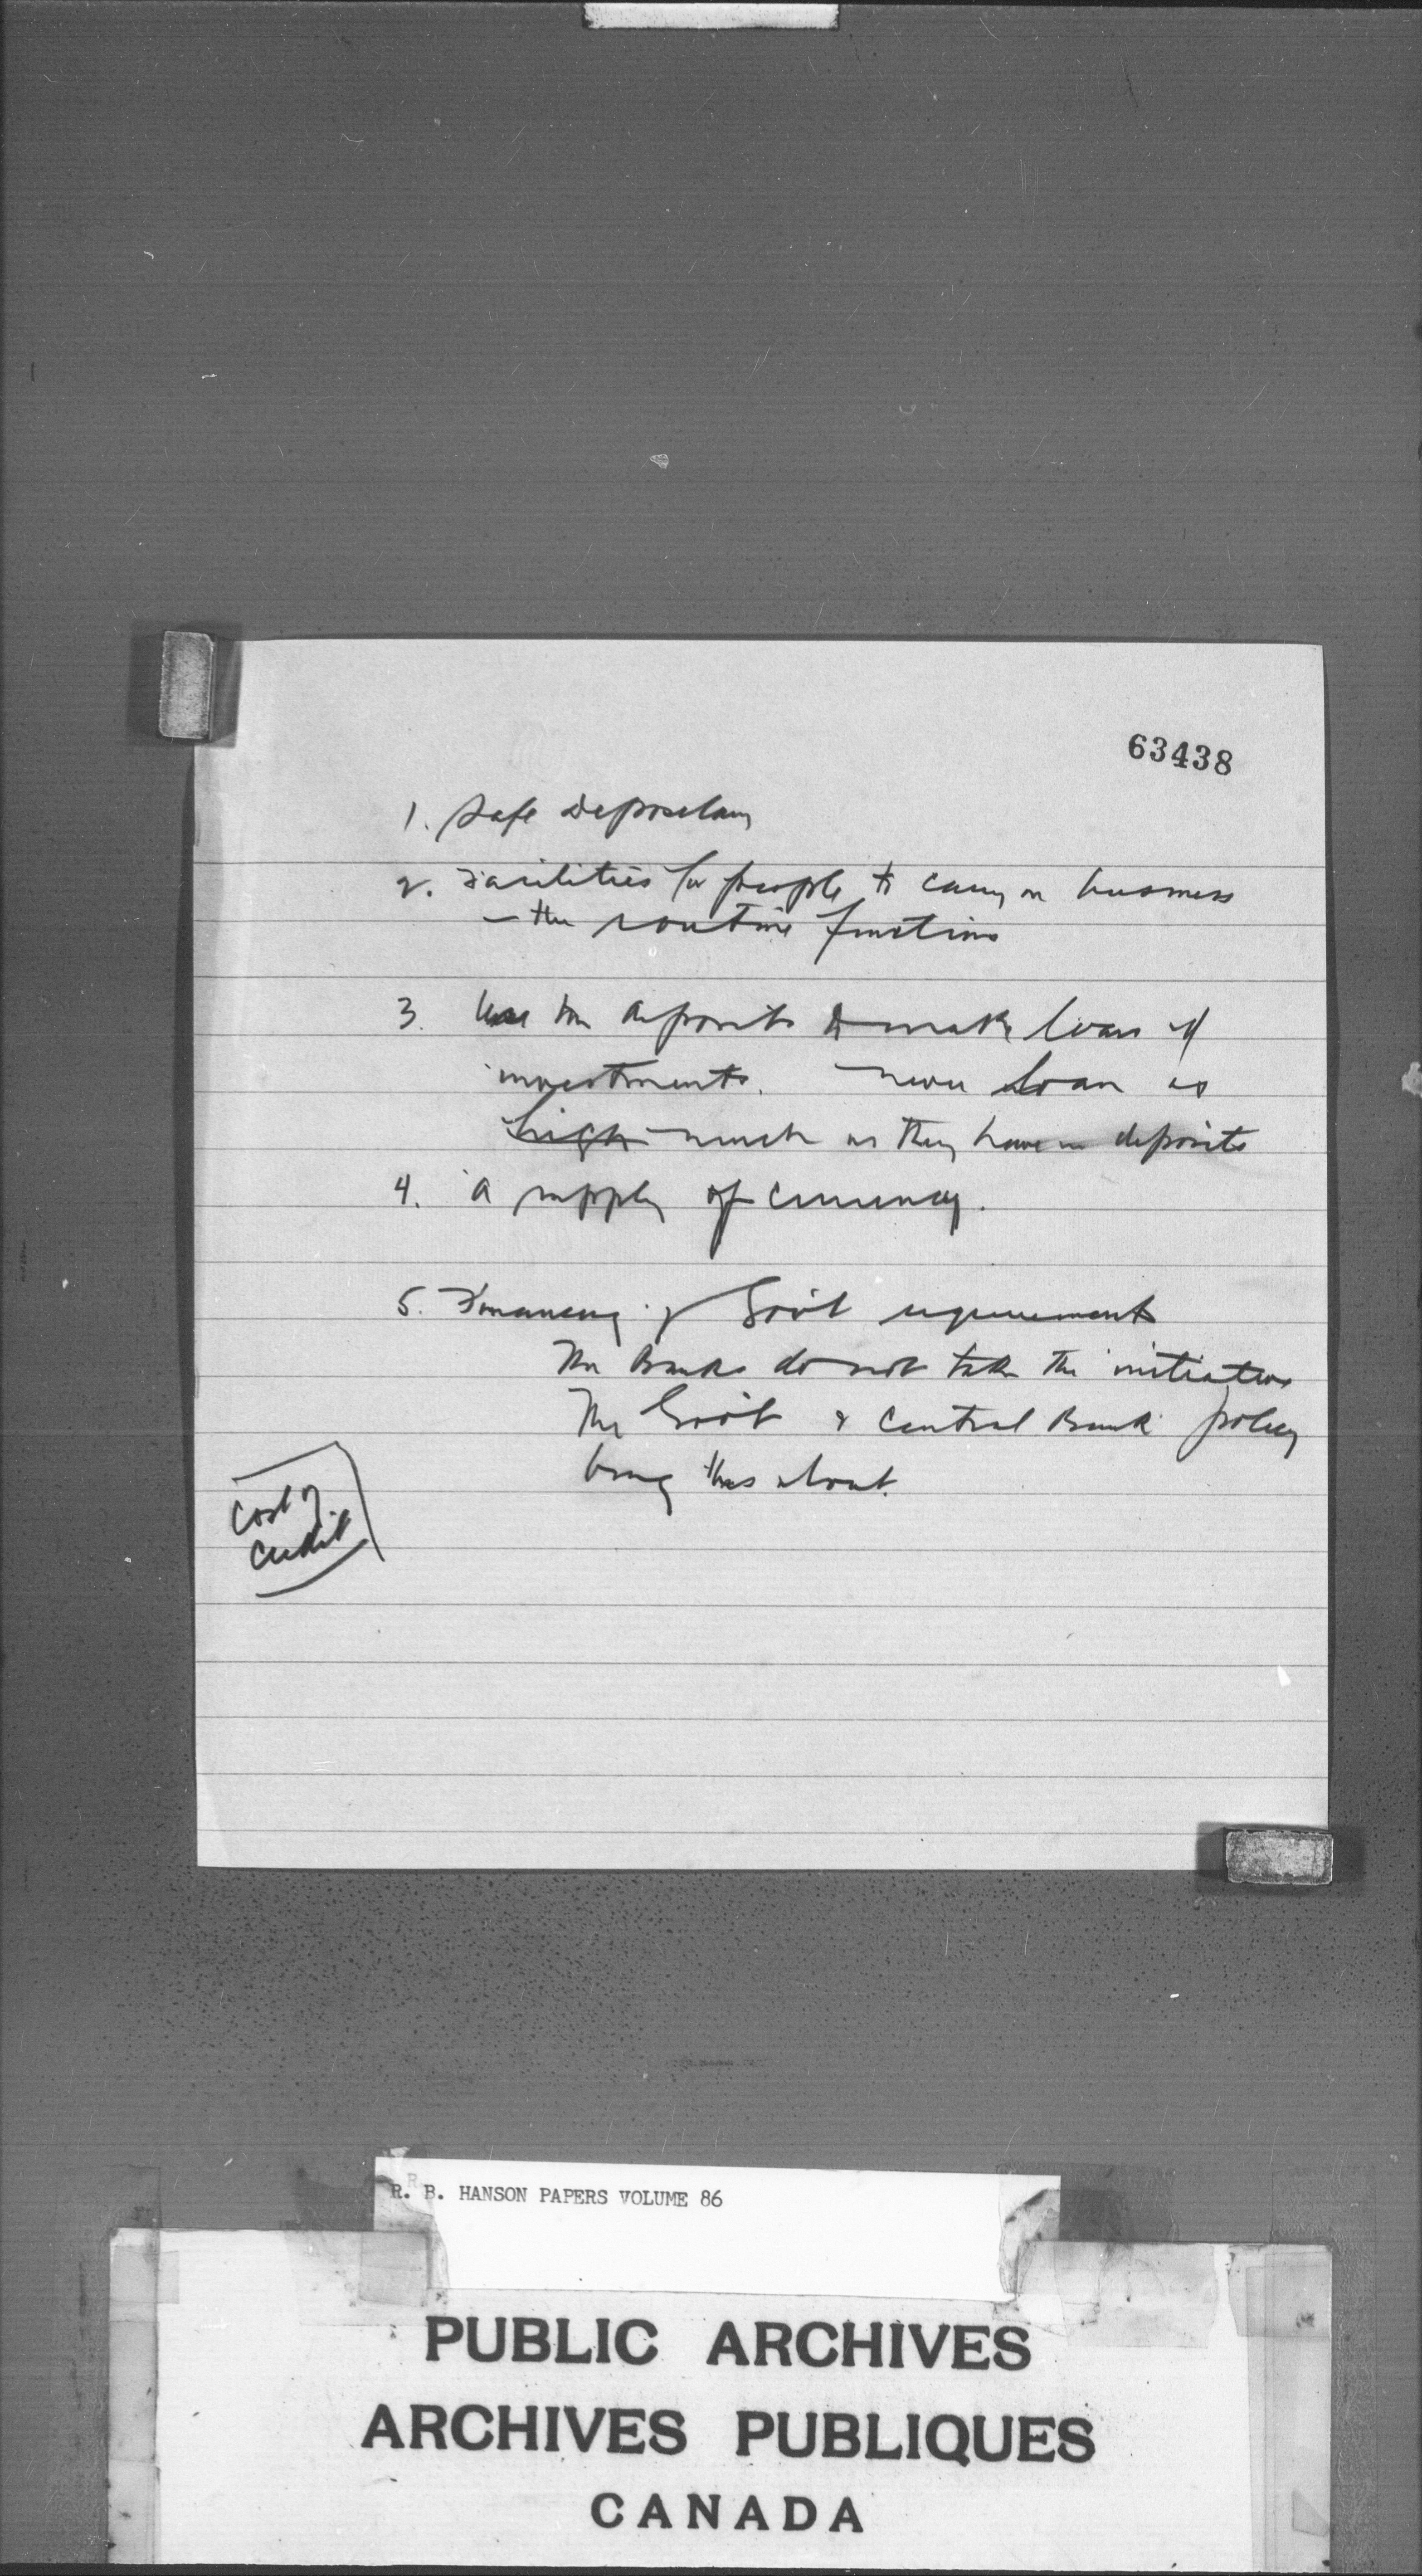 63438
1. Safe Depository
2. Facilities for people to carry on business
— the routine functions
3. Use the deposits to make loans &
investments. never loan as
high much as they have in deposits
4. a supply of currency.
5. Financing of Gov't requirements
The Banks do not take the initiative
The Gov't & Central Bank policy
bring this about.
Cost of
Credit
R. B. HANSON PAPERS VOLUME 86
PUBLIC ARCHIVES
ARCHIVES PUBLIQUES
CANADA